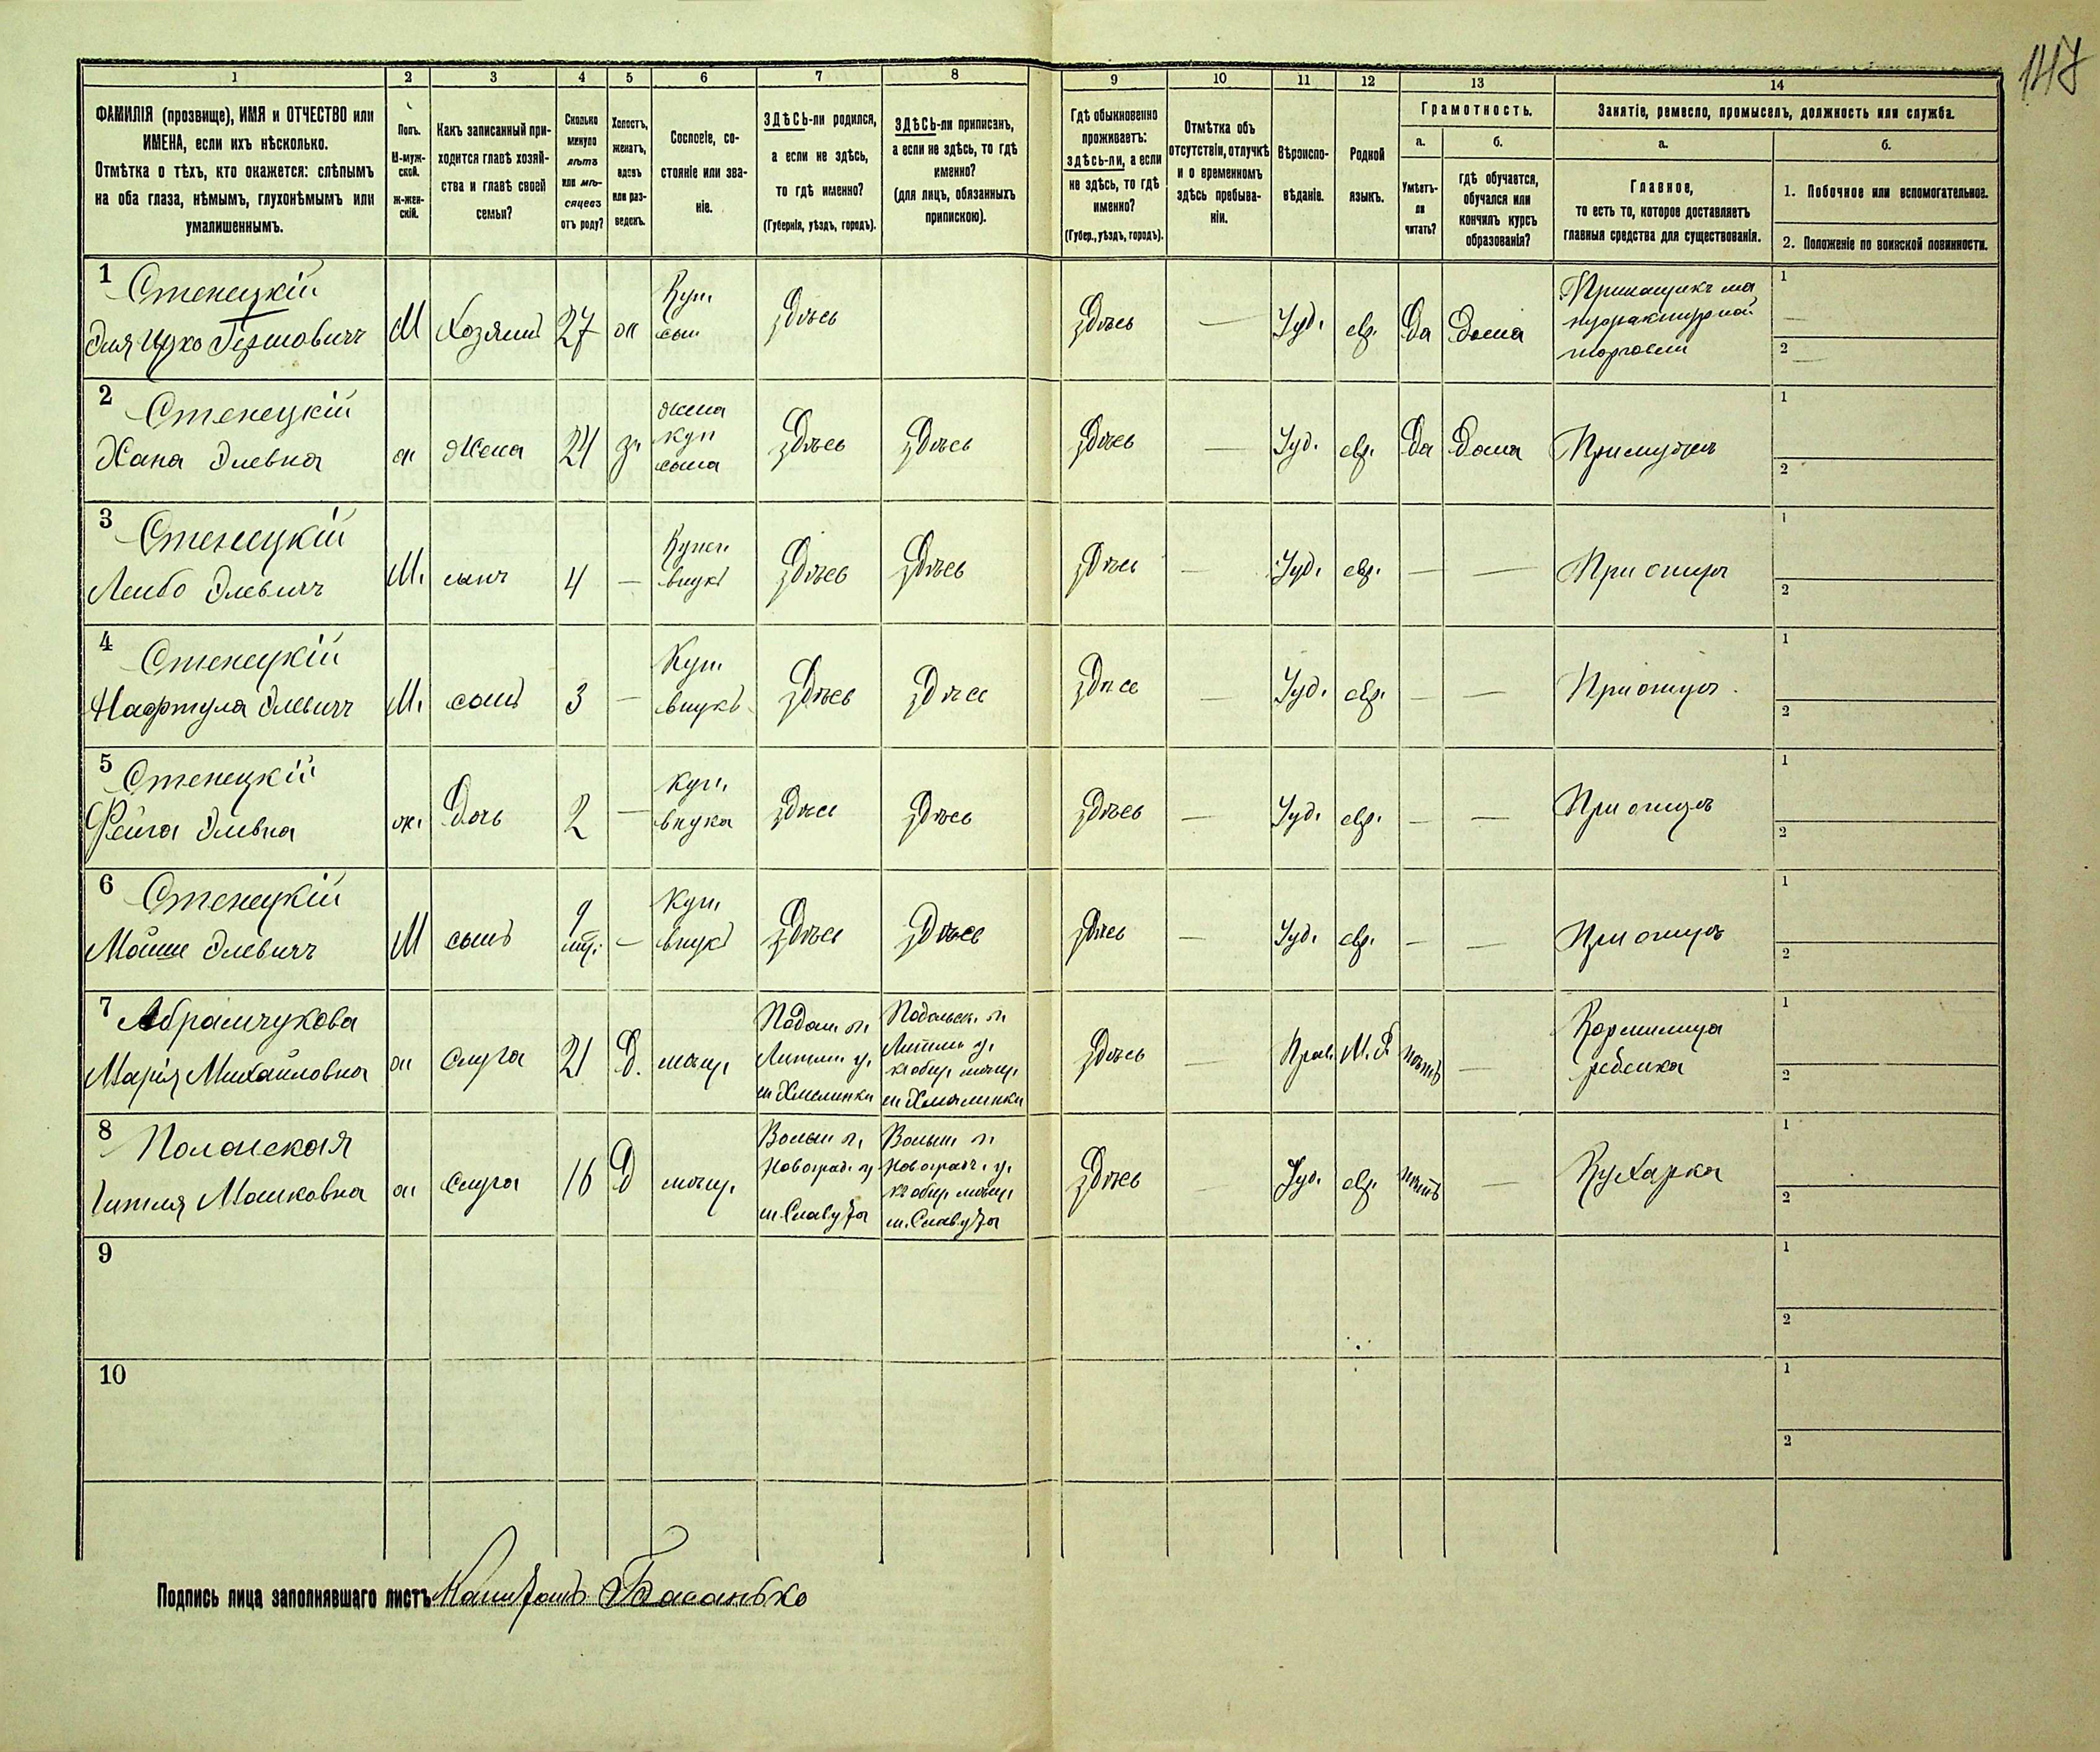 147
1 2 3 4 5 6 7 8 9 10 11 12 13 14
ФАМИЛІЯ (прозвище), ИМЯ и ОТЧЕСТВО или
ИМЕНА, если ихъ нѣсколько.
Отмѣтка о тѣхъ, кто окажется: слѣпымъ
на оба глаза, нѣмымъ, глухонѣмымъ или
умалишеннымъ.
Полъ.
М-муж-
ской.
Ж-жен-
скій.
Какъ записанный при-
ходится главѣ хозяй-
ства и главѣ своей
семьи?
Сколько
минуло
лѣтъ
или мѣ-
сяцевъ
отъ роду?
Холостъ,
женатъ,
вдовъ
или раз-
веденъ.
Сословіе, со-
стояніе или зва-
ніе.
ЗДѢСЬ-ли родился,
а если не здѣсь,
то гдѣ именно?
(Губернія, уѣздъ, городъ).
ЗДѢСЬ-ли приписанъ,
а если не здѣсь, то гдѣ
именно?
(для лицъ, обязанныхъ
припискою).
Гдѣ обыкновенно
проживаетъ:
здѣсь-ли, а если
не здѣсь, то гдѣ
именно?
(Губер., уѣздъ, городъ).
Отмѣтка объ
отсутствіи, отлучкѣ
и о временномъ
здѣсь пребыва-
ніи.
Вѣроиспо-
вѣданіе.
Родной
языкъ.
Грамотность.
а.
Умѣетъ-
ли
читать?
б.
гдѣ обучается,
обучался или
кончилъ курсъ
образованія?
Занятіе, ремесло, промыселъ, должность или служба.
а.
Главное,
то есть то, которое доставляетъ
главныя средства для существованія.
б.
1. Побочное или вспомогательное.
2. Положеніе по воинской повинности.
1 Стенецкій
Эля Ицко Гершовичъ М Хозяинъ 27 ж Куп. сын Здѣсь Здѣсь — Іуд. евр. Да Дома Прикащикъ ма
нуфактурной
торговли 1 2
2 Стенецкій
Хана Элевна ж Жена 24 з. жена
куп
сына Здѣсь Здѣсь Здѣсь — Іуд. евр. Да Дома При мужѣ 1 2
3 Стенецкій
Лейбо Элевичъ М. сынъ 4 — Купеч
внукъ Здѣсь Здѣсь Здѣсь — Іуд. евр. — — При отцѣ 1 2
4 Стенецкій
Нафтула Элевичъ М. сынъ 3 — Куп.
внукъ Здѣсь Здѣсь Здѣсь — Іуд. евр. — — При отцѣ 1 2
5 Стенецкій
Фейга Элевна ж. Дочь 2 — Куп.
внука Здѣсь Здѣсь Здѣсь — Іуд. евр. — — При отцѣ 1 2
6 Стенецкій
Мойше Элевичъ М сынъ 9
мѣ. — Куп.
внукъ Здѣсь Здѣсь Здѣсь — Іуд. евр. — — При отцѣ 1 2
7 Абрамчукова
Марія Михайловна ж слуга 21 Д. мѣщ. Подол. г.
Литин. у.
м Хмелинки Подольск. г.
Литин у.
къ общ. мѣщ.
м Хмелинки Здѣсь — Прав. М. Р. нѣтъ — Кормилица
ребенка 1 2
8 Полонская
Гитля Мошковна ж слуга 16 Д мѣщ. Волын г.
Новоград. у
м. Славута Волын г.
Новоград. у.
къ общ. мѣщ.
м. Славута Здѣсь — Іуд. евр. нѣтъ — Кухарка 1 2
9 1 2
10 1 2
Подпись лица заполнявшаго листъ Басанько